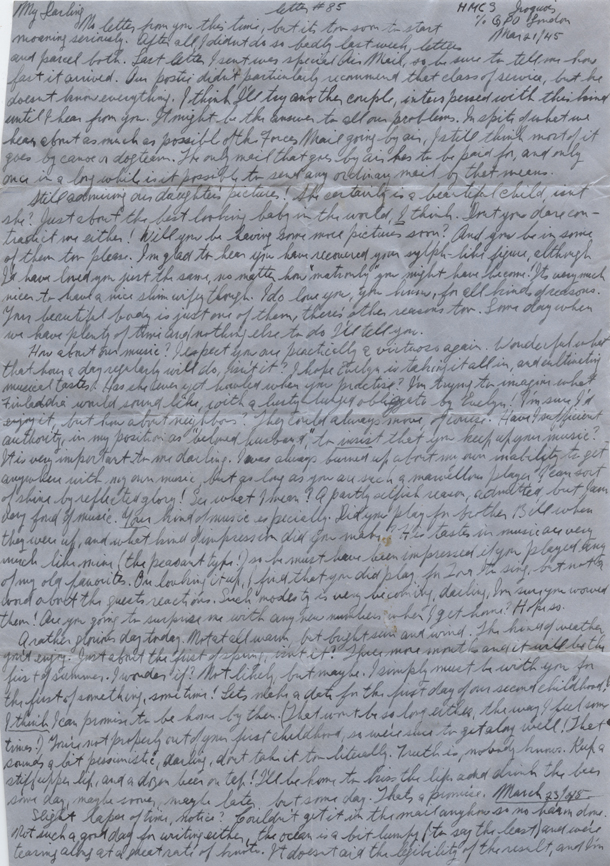 My Darling letter #85 HMCS Iroquois,
c/o GPO London
Mar 21/45
No letter from you this time, but it's too soon to start
moaning seriously. After all I didn't do so badly last week, letters
and parcel both. Last letter I sent was special Air Mail, so be sure to tell me how
fast it arrived. Our postie didn't particularly recommend that class of service, but he
doesn't know everything. I think I'll try another couple, interspersed with this kind
until I hear from you. It might be the answer to all our problems. In spite of what we
hear about as much as possible of the Forces Mail going by air, I still think most of it
goes by canoe or dogteam. The only mail that goes by air has to be paid for, and only
once in a long while is it possible to send any ordinary mail by that means.
Still admiring our daughter's pictures! She certainly is a beautiful child, isn't
she? Just about the best looking baby in the world, I think. Don't you dare con-
tradict me either! Will you be having some more pictures soon? And you be in some
of them too please. I'm glad to hear you have recovered your sylph-like figure, although
I'd have loved you just the same, no matter how "matronly" you might have become. It's very much
nicer to have a nice slim wify though. I do love you, you know, for all kinds of reasons.
Your beautiful body is just one of them, there's other reasons too. Some day when
we have plenty of time and nothing else to do I'll tell you.
How about our music? I expect you are practically a virtuoso again. Wonderful what
that hour a day regularly will do, isn't it? I hope Evelyn is taking it all in, and cultivating
musical tastes! Has she ever yet howled when you practise? I'm trying to imagine what
Finlandia would sound like, with a lusty lunged obbligato by Evelyn! I'm sure I'd
enjoy it, but how about neighbors? They could always move of course. Have I sufficient
authority, in my position as beloved husband, to insist that you keep up your music?
It is very important to me darling. I was always burned up about my own inability to get
anywhere with my own music, but as long as you are such a marvellous player I can sort
of shine by reflected glory! See what I mean? A partly selfish reason, admitted, but I am
very fond of music. Your kind of music especially. Did you play for brother Bill when
they were up, and what kind of impression did you make? His tastes in music are very
much like mine (the peasant type!) so he must have been impressed if you played any
of my old favorites. On looking it up, I find that you did play, for to sing, but not a
word about the guests reactions. Such modesty is very becoming, darling, I'm sure you wowed
them! Are you going to surprise me with any new numbers when I get home? Hope so.
A rather glorious day today. Not at all warm, but bright sun and wind. The kind of weather
you'd enjoy. Just about the first of spring, isn't it? Three more months and it will be the
first of summer. I wonder if? Not likely, but maybe. I simply must be with you for
the first of something, sometime! Lets make a date for the first day of our second childhood!
I think I can promise to be home by then. (That won't be so long either, the way I feel some
times!) You're not properly out of your first childhood, so we're sure to get along well! That
sounds a bit pessimistic, darling, don't take it too literally. Truth is, nobody knows. Keep a
stiff upper lip, and a dozen beer on tap! I'll be home to kiss the lip and drink the beer
some day, maybe soon, maybe late, but some day. That's a promise. March 23/45
Slight lapse of time, notice? Couldn't get it in the mail anyhow so no harm done.
Not such a good day for writing either, the ocean is a bit lumpy (to say the least) and we're
tearing along at a great rate of knots. It doesn't aid the legibility of the result, and